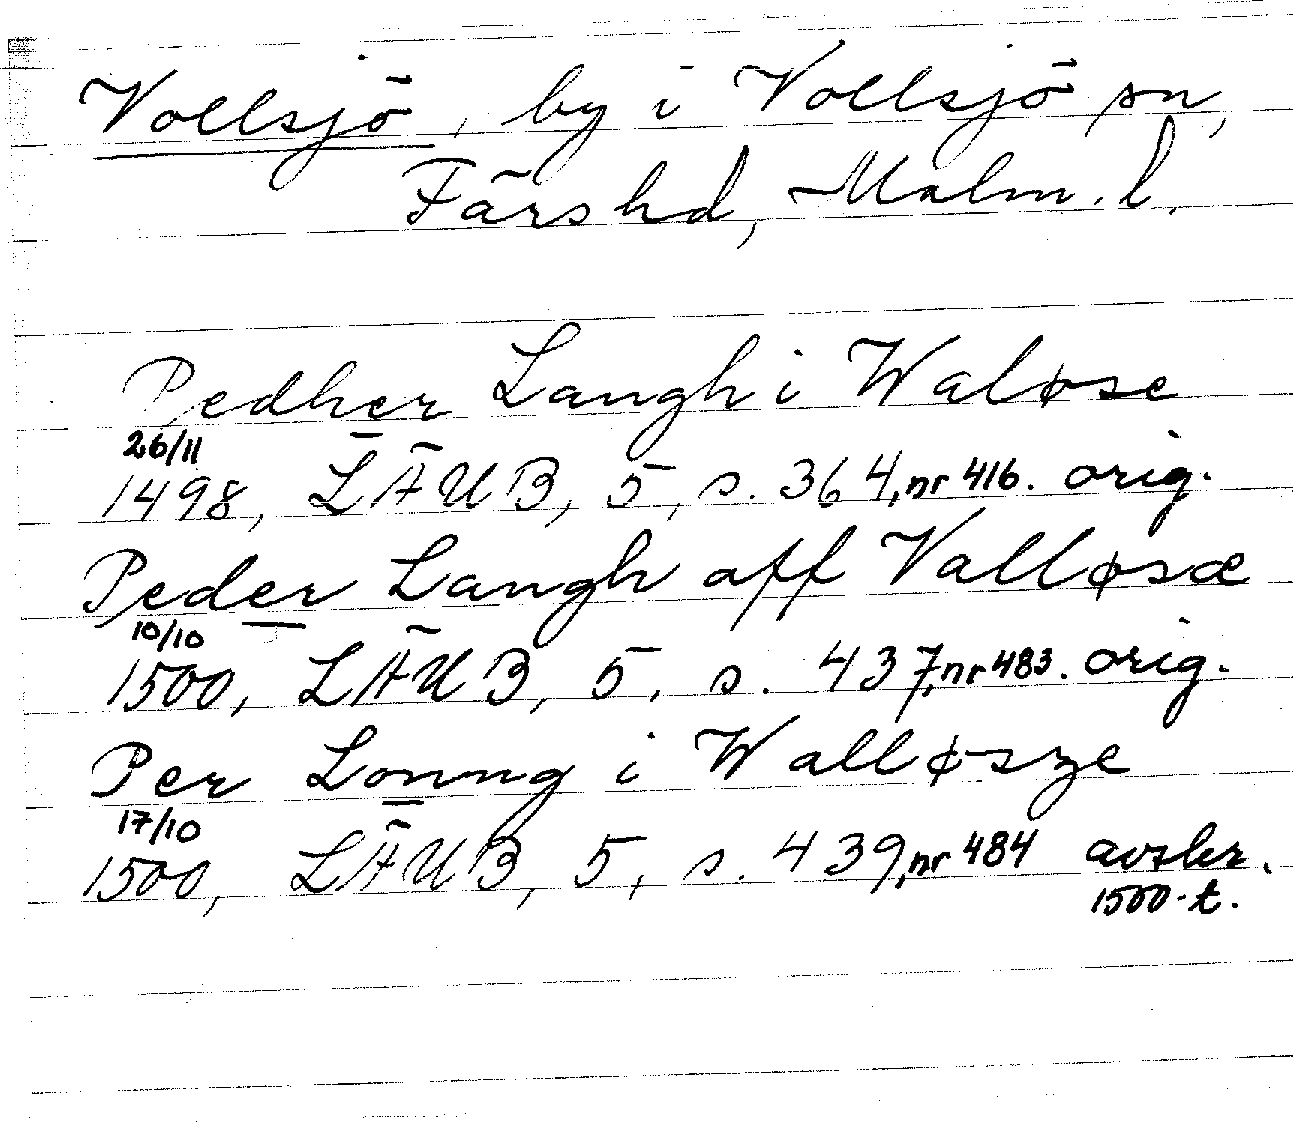 Vollsjö, by i Vollsjö sn,
Färs hd, Malm. l.
Pedher Langh i Waløse
26/11
1498, LÄUB, 5, s. 364, nr 416. orig.
Peder Langh aff Valløsæ
10/10
1500, LÄUB, 5, s. 437, nr 483. orig.
Per Lonng i Walløsze
17/10
1500, LÄUB, 5, s. 439, nr 484 avskr.
1500-t.